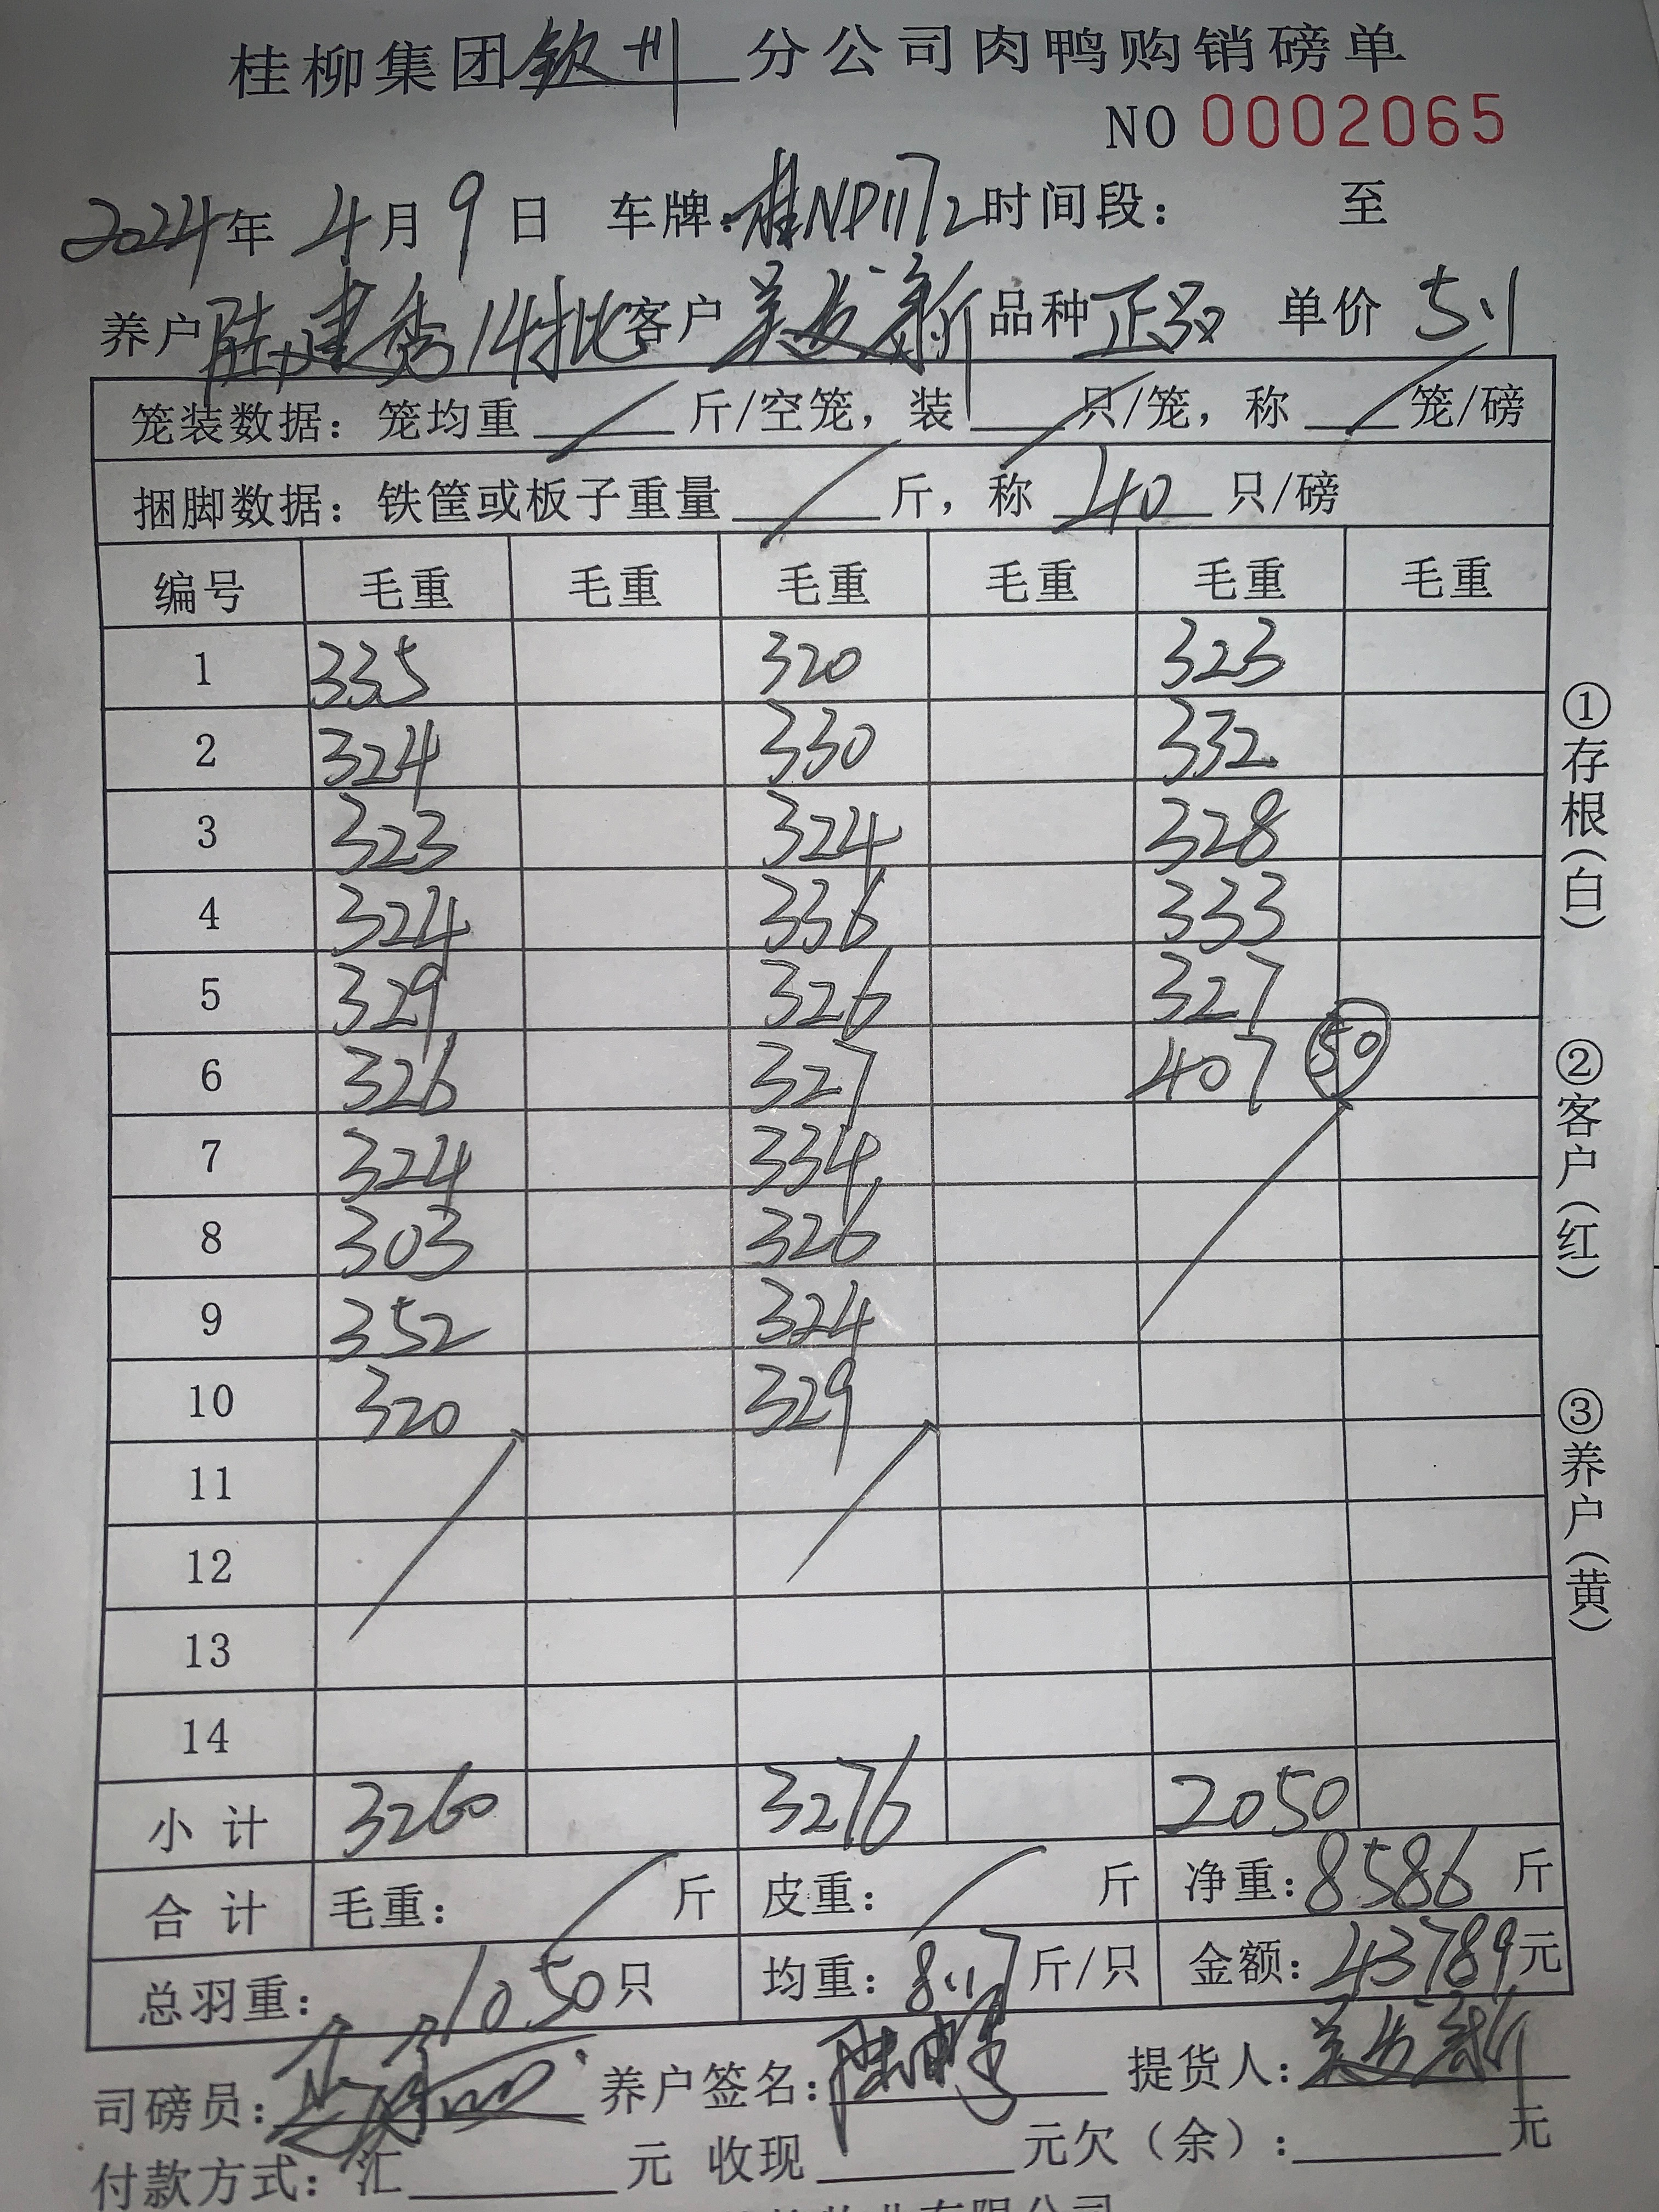 桂柳集团钦州分公司肉鸭购销磅单
NO 0002065
2024年4月9日 车牌:桂NP1172时间段: 至
养户陆建秀14批客户美发新品种正品 单价5.1
笼装数据:笼均重 斤/空笼,装 只/笼,称 笼/磅
捆脚数据:铁筐或板子重量 斤,称40只/磅
编号 毛重 毛重 毛重 毛重 毛重 毛重
1 335 320 323
2 324 330 332
3 323 324 328
4 324 336 333
5 329 326 327
6 326 327 407 50
7 324 334
8 303 326
9 352 324
10 320 329
11
12
13
14
小计 3260 3276 2050
合计 毛重: 斤 皮重: 斤 净重:8586斤
总羽重:1050只 均重:8.17斤/只 金额:43789元
司磅员: 养户签名: 提货人:美发新
付款方式:汇 元 收现 元欠(余): 元
①存根(白)
②客户(红)
③养户(黄)